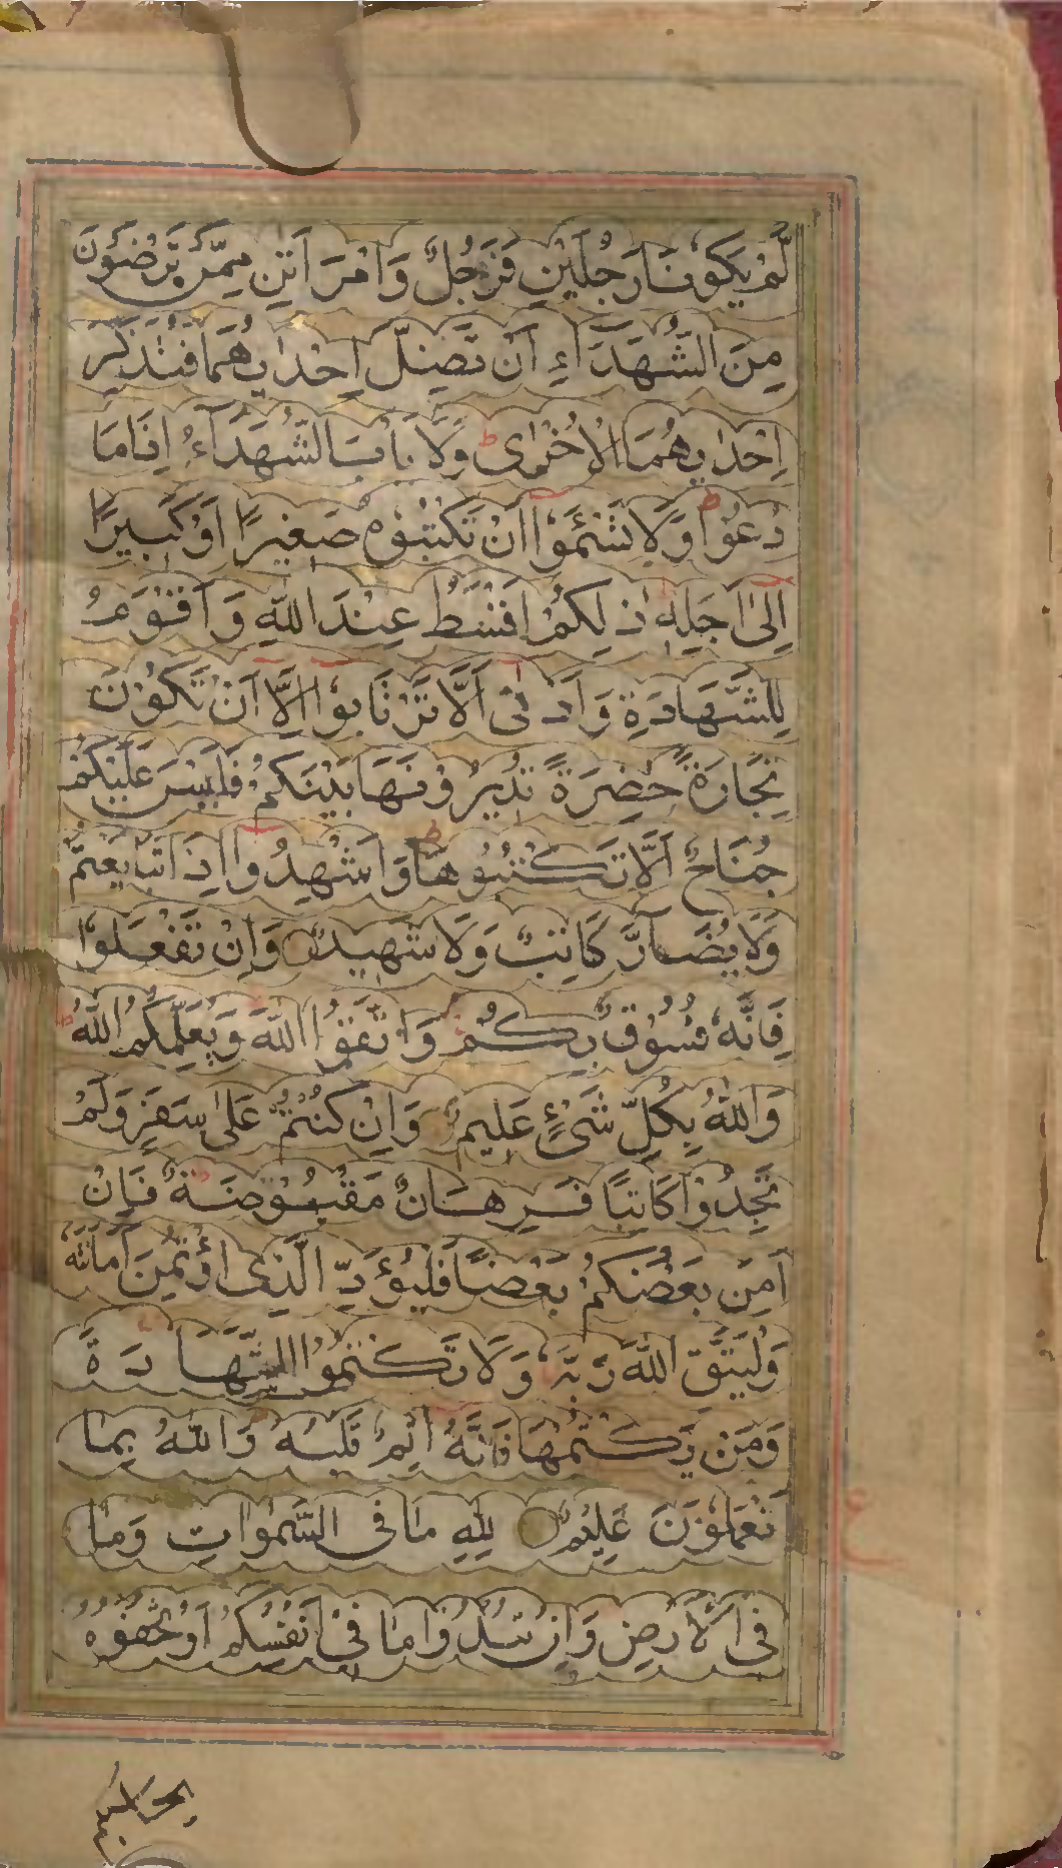 لَّمْ يَكُوْنَا رَجُلَيْنِ فَرَجُلٌ وَّامْرَاَتٰنِ مِمَّنْ تَرْضَوْنَ
مِنَ الشُّهَدَآءِ اَنْ تَضِلَّ اِحْدٰىهُمَا فَتُذَكِّرَ
اِحْدٰىهُمَا الْاُخْرٰى ط وَلَا يَاْبَ الشُّهَدَآءُ اِذَا مَا
دُعُوْا ط وَلَا تَسْئَمُوْٓا اَنْ تَكْتُبُوْهُ صَغِيْرًا اَوْ كَبِيْرًا
اِلٰٓى اَجَلِهٖ ذٰلِكُمْ اَقْسَطُ عِنْدَ اللّٰهِ وَ اَقْوَمُ
لِلشَّهَادَةِ وَ اَدْنٰٓى اَلَّا تَرْتَابُوْٓا اِلَّآ اَنْ تَكُوْنَ
تِجَارَةً حَاضِرَةً تُدِيْرُوْنَهَا بَيْنَكُمْ فَلَيْسَ عَلَيْكُمْ
جُنَاحٌ اَلَّا تَكْتُبُوْهَا ط وَاَشْهِدُوْٓا اِذَا تَبَايَعْتُمْ
وَلَا يُضَآرَّ كَاتِبٌ وَّلَا شَهِيْدٌ وَاِنْ تَفْعَلُوْا
فَاِنَّهٗ فُسُوْقٌ بِكُمْ وَاتَّقُوا اللّٰهَ وَيُعَلِّمُكُمُ اللّٰهُ ط
وَاللّٰهُ بِكُلِّ شَیْءٍ عَلِيْمٌ وَاِنْ كُنْتُمْ عَلٰى سَفَرٍ وَّلَمْ
تَجِدُوْا كَاتِبًا فَرِهَانٌ مَّقْبُوْضَةٌ فَاِنْ
اَمِنَ بَعْضُكُمْ بَعْضًا فَلْيُؤَدِّ الَّذِى اؤْتُمِنَ اَمَانَتَهٗ
وَلْيَتَّقِ اللّٰهَ رَبَّهٗ وَلَا تَكْتُمُوا الشَّهَادَةَ
وَمَنْ يَّكْتُمْهَا فَاِنَّهٗٓ اٰثِمٌ قَلْبُهٗ وَاللّٰهُ بِمَا
تَعْمَلُوْنَ عَلِيْمٌ لِلّٰهِ مَا فِى السَّمٰوَاتِ وَمَا
فِى الْاَرْضِ وَاِنْ تُبْدُوْا مَا فِىْٓ اَنْفُسِكُمْ اَوْ تُخْفُوْهُ
ع